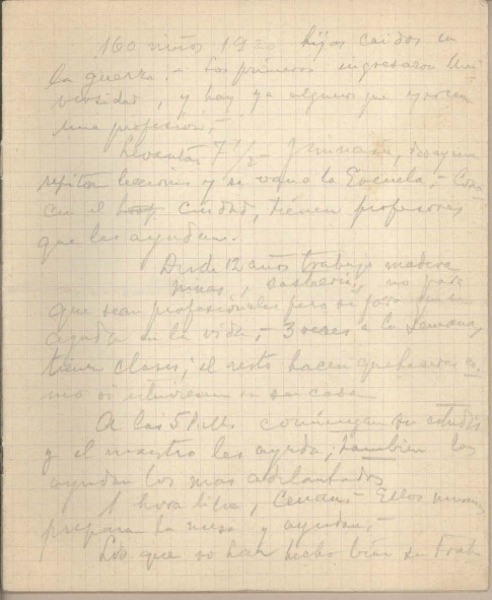 160 niños 19 hijos caidos en
la guerra.- Los primeros ingresaron Uni
versidad, y hay ya algunos que ejercen
una profesión.-
Levantan 7 1/2 gimnasia, desayuno
repiten lecciones y se van a la Escuela.-
en el ciudad, tienen profesores
que las ayudan.
Desde 12 años trabajo madera
ninas, no para
que sean profesionales pero si para
ayuda en la vida.- 3 veces a la semana
tienen clases; el resto hacen quehaceres co
mo si estuviesen en su casa
A las 5 P.M. comienzan su estudio
y el maestro les ayuda; también les
ayudan los mas adelantados
1 hora libre, Cenan- Ellos mismos
preparan la mesa y ayudan.-
Los que no han hecho bien su